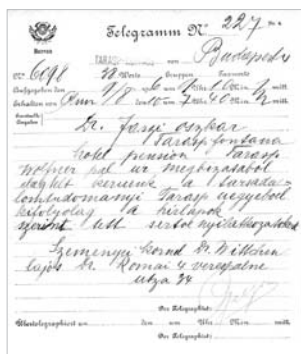 Telegramm No. 227.
Bureau
TARASP von Budapest
No. 6098 38 Worte Gruppen Taxworte
Aufgegeben den 9/8 um Uhr 10 Min. mitt.
Erhalten von den 10 um 7 Uhr 40 Min. mitt.
Dr. Jaszi oszkar
Tarasp fontana
hotel pension Tarasp
wolfner pal ur megbizasabol
kerjuk a tarsada-
lomtudomanyi Tarasag ugyebol
kifolyolag a hirlapok
szerint tett serto nyilatkozatokert
Szemenyei kornel Dr. Wittchen
lajos Dr. Romai 4 verespalne
utza 24
Per Telegraphist:
Übertelegraphiert um den um Uhr Min. mitt.
Per Telegraphist: